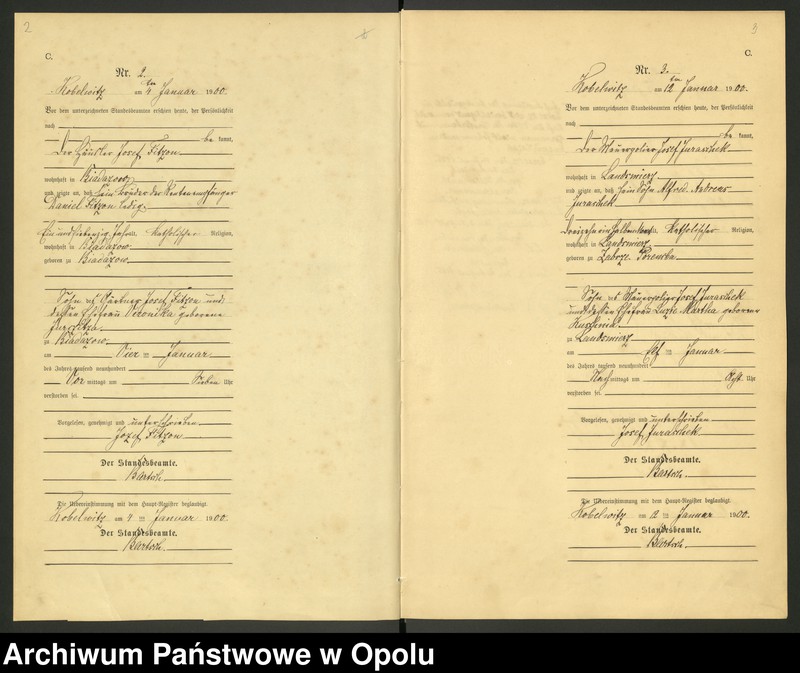 2
C.
Nr. 2.
Kobelwitz am 4ten Januar 1900.
Vor dem unterzeichneten Standesbeamten erschien heute, der Persönlichkeit
nach
be kannt,
der Häusler Josef Fitzon
wohnhaft in Biadazow
und zeigte an, daß sein Bruder der Rentenempfänger
Daniel Fitzon ledig,
Ein und siebenzig Jahre, katholischer Religion,
wohnhaft in Biadazow
geboren zu Biadazow
Sohn des Gärtner Josef Fitzon und
dessen Ehefrau Veronika geborene
zu Biadazow
am Vier ten Januar
des Jahres tausend neunhundert
Vor mittags um Sieben Uhr
verstorben sei.
Vorgelesen, genehmigt und unterschrieben
Jozef Fitzon
Der Standesbeamte.
Bartsch.
Die Uebereinstimmung mit dem Haupt-Register beglaubigt.
Kobelwitz am 4 ten Januar 1900.
Der Standesbeamte.
Bartsch.
3
C.
Nr. 3.
Kobelwitz am 12ten Januar 1900.
Vor dem unterzeichneten Standesbeamten erschien heute, der Persönlichkeit
nach
be kannt,
der Mauerpolier Josef Juraschek
wohnhaft in Landsmierz
und zeigte an, daß sein Sohn Alfred Andreas
Juraschek
Dreizehn einhalb katholischer Religion,
wohnhaft in Landsmierz
geboren zu Zaborze Poremba
Sohn des Mauerpolier Josef Juraschek
und dessen Ehefrau Luzie Martha geborene
zu Landsmierz
am Elf ten Januar
des Jahres tausend neunhundert
Nach mittags um Acht Uhr
verstorben sei.
Vorgelesen, genehmigt und unterschrieben
Josef Juraschek
Der Standesbeamte.
Bartsch.
Die Uebereinstimmung mit dem Haupt-Register beglaubigt.
Kobelwitz am 12 ten Januar 1900.
Der Standesbeamte.
Bartsch.
Archiwum Państwowe w Opolu